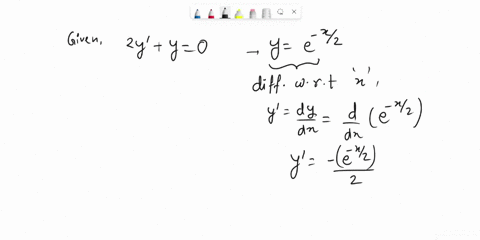 Given, 2y' + y = 0 → y = e^{-x/2}
diff. w.r.t 'x',
y' = dy/dx = d/dx (e^{-x/2})
y' = -(e^{-x/2})/2